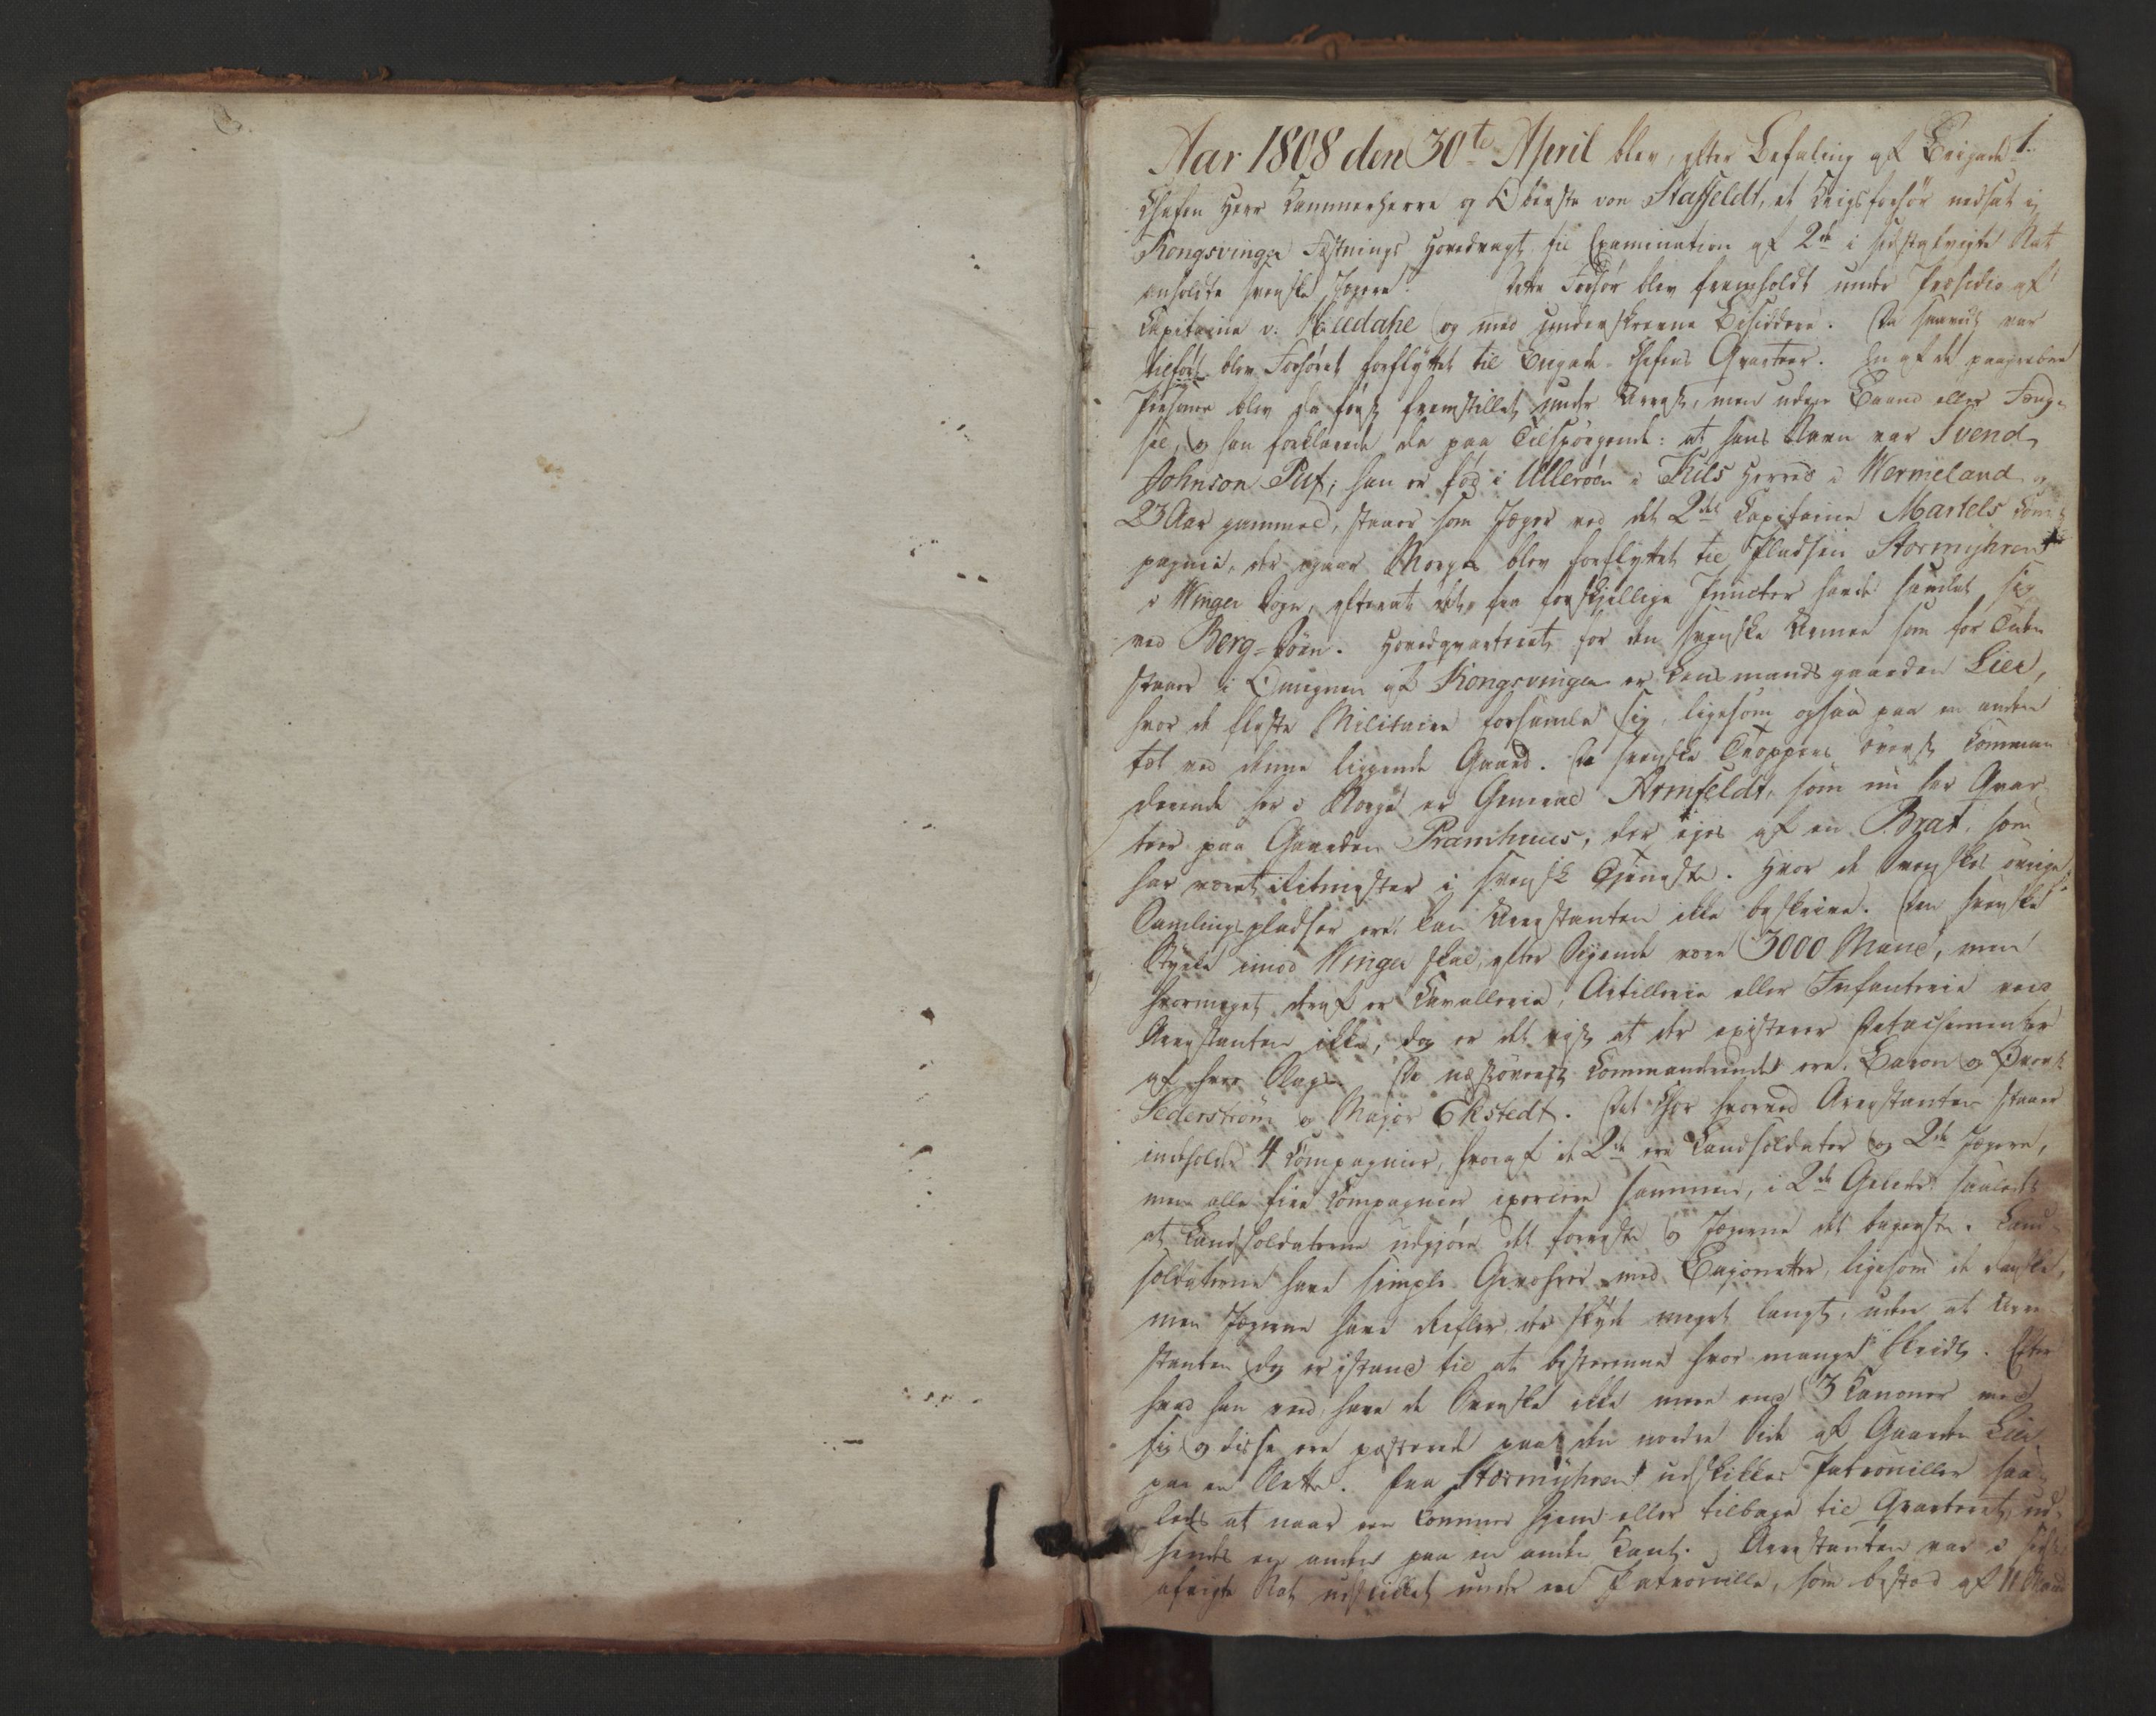 1.
Aar 1808 den 30te April blev, efter Befaling af Brigade
Chefen Herr Kammerherre og Oberste von Staffeldt, et Krigsforhör nedsat i
Kongsvinger Festnings Hovedvagt til Examination af 2de i sidstafvigte Nat
anholdte svenske Jægere. Dette Forhör blev fremholdt under Præsidio af
Capitaine v. Huldahl og med underskrevne Bisiddere. Da saavidt var
tilfört blev Forhöret forflyttet til Brigade-Chefens Qvarteer. En af de paagrebne
Personer blev da först fremstillet under Arrest, men uden Baand eller Fæng-
sel, og han forklarede da paa Tilspörgende: at hans Navn var Svend
Johnson Puf; han er föd i Ulleröen i Kils Herred i Wermeland og
23 Aar gammel, staaer som Jæger ved det 2det Capitaine Martels Com-
pagnie, der igaar Morges blev forflyttet til Pladsen Stormyhren
i Winger Sogn, efterat det, fra forskjellige Puncter havde samlet sig
ved Berg-Söen. Hovedqvarteret for den svenske Armee som for Tiden
staaer i Omegnen af Kongsvinger er Lensmandsgaarden Lier,
hvor de fleste Militaire forsamle sig, ligesom ogsaa paa en anden
tæt ved denne liggende Gaard. De svenske Troppers överst Comman-
derende her i Norge er General Armfeldt, som nu har Qvar-
teer paa Gaarden Pramhuus, der ejes af en Brat, som
har været Ritmester i svensk Tjeneste. Hvor de Svenskes övrige
Samlingspladser ere kan Arrestanten ikke beskrive. Den svenske
Styrke imod Winger skal, efter Sigende være 3000 Mand, men
hvormeget deraf er Cavallerie, Artillerie eller Infanterie veed
Arrestanten ikke, dog er det vist at der existerer Detachementer
af hver Slags. De næstöverst Commanderende ere, Baron og Överst
Sederström og Major Ekstedt. Det Chor hvorved Arrestanten staaer
indeholder 4 Compagnier, hvoraf de 2de ere Landsoldater og 2de Jægere,
men alle fire Compagnier exercere sammen, i 2de Geleder saaledes
at Landsoldaterne udgjöre det forreste og Jægerne det bagerste. Land-
soldaterne have simple Gevehrer med Bajonetter, ligesom de danske,
men Jægerne have Rifler, der skyde meget langt, uden at Arre-
stanten dog er istand til at bestemme hvor mange Skridt. Efter
hvad han veed, have de Svenske ikke mere end 3 Canoner med
sig og disse ere posterede paa den nordre Side af Gaarden Lier
paa en Slette. Fra Stormyhren udskikkes Patrouiller saa-
ledes at naar een kommer hjem eller tilbage til Qvarteret, ud-
sendes en anden paa en anden Kant. Arrestanten var i sidst-
afvigte Nat udskikket under en Patrouille, som bestod af 11 Mand